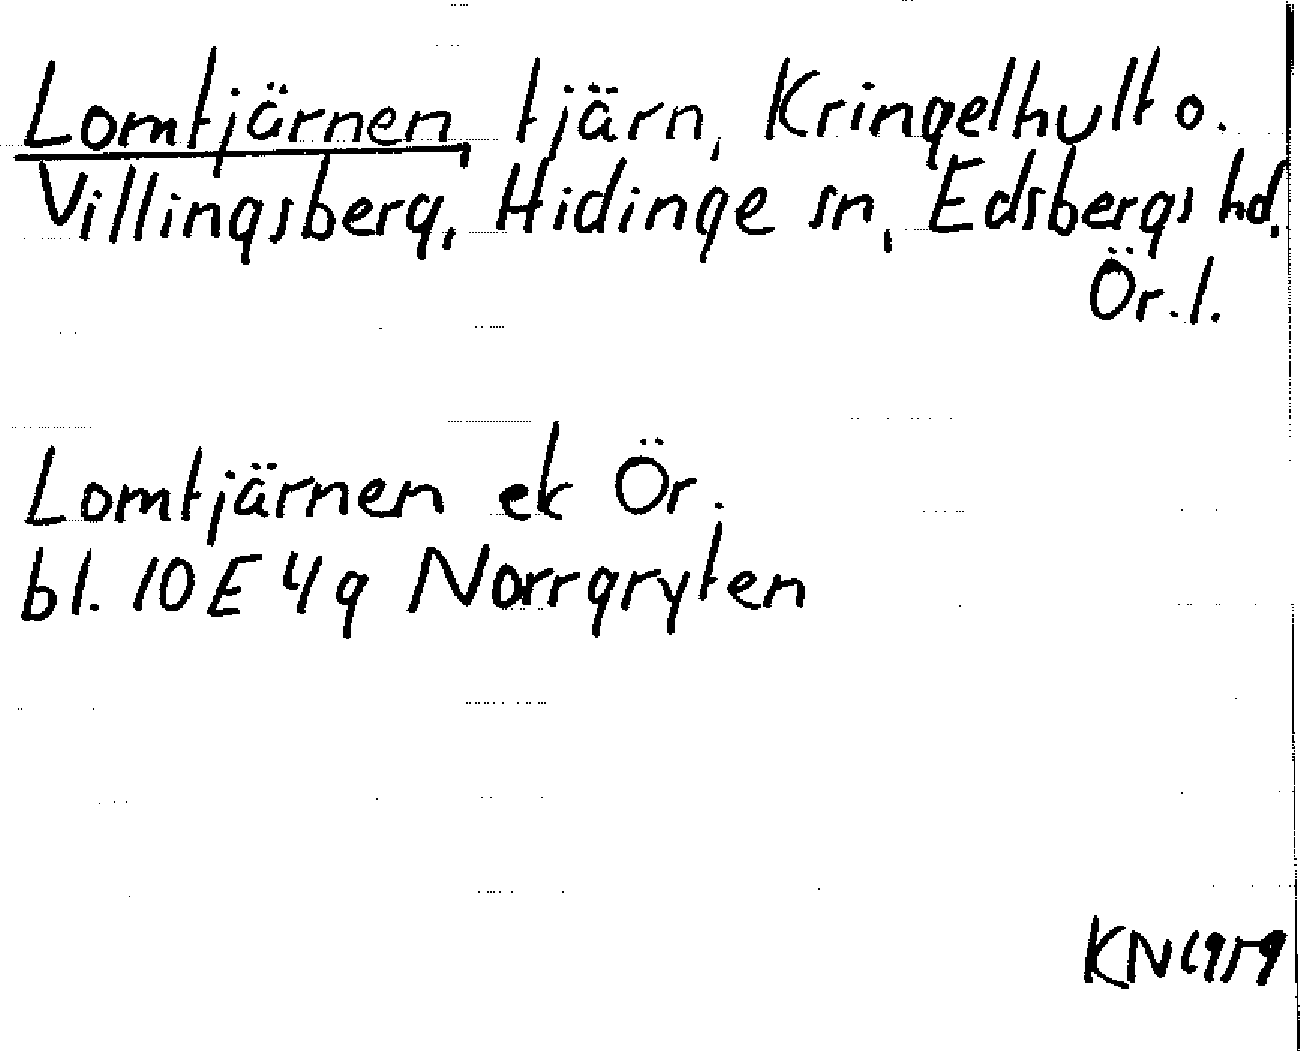 Lomtjärnen, tjärn, Kringelhult o.
Villingsberg, Hidinge sn, Edsbergs hd.
Ör. l.
Lomtjärnen ek Ör.
bl. 10 E 4 g Norrgryten
KN 1959